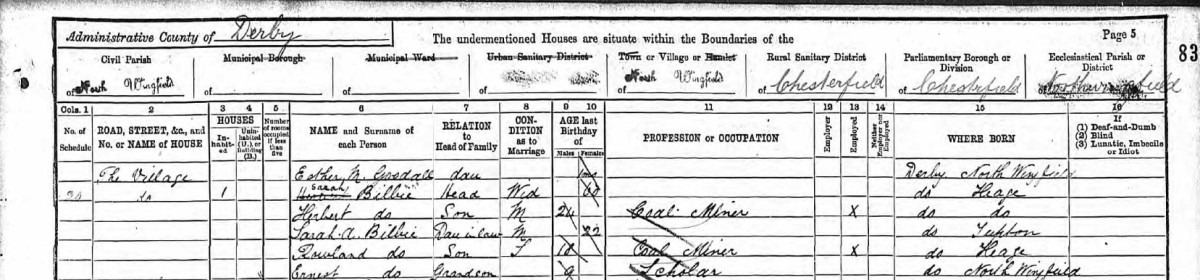 Administrative County of Derby
The undermentioned Houses are situate within the Boundaries of the
Page 5
83
Civil Parish
of North Wingfield
Municipal Borough
of
Municipal Ward
of
Urban Sanitary District
of
Town or Village or Hamlet
of North Wingfield
Rural Sanitary District
of Chesterfield
Parliamentary Borough or Division
of Chesterfield
Ecclesiastical Parish or District
of
Cols. 1 2 3 4 5 6 7 8 9 10 11 12 13 14 15 16
No. of Schedule
ROAD, STREET, &c., and No. or NAME of HOUSE
HOUSES
Inhabited
Uninhabited (U.) or Building (B.)
Number of rooms occupied if less than five
NAME and Surname of each Person
RELATION to Head of Family
CONDITION as to Marriage
AGE last Birthday of
Males Females
PROFESSION or OCCUPATION
Employer
Employed
Neither Employer nor Employed
WHERE BORN
If
(1) Deaf-and-Dumb
(2) Blind
(3) Lunatic, Imbecile or Idiot
The Village Esther M. Goodall dau Derby North Wingfield
do 1 Sarah Billie Head Wid 60 do Heage
Herbert do Son M 24 Coal Miner X do do
Sarah A. Billie Dau in law M 22 do Tupton
Rowland do Son S 18 Coal Miner X do Heage
Ernest do Grandson 9 Scholar do North Wingfield